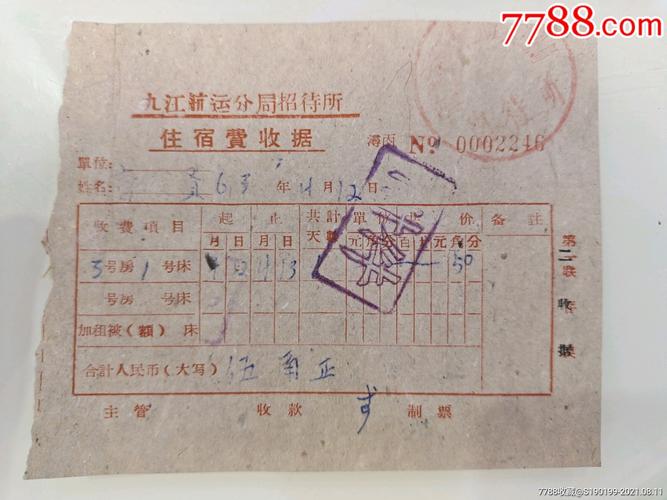 7788.com
九江航运分局招待所
住宿費收据
浔丙 № 0002246
單位:
姓名: 年4月12日
收費項目 起 止 共計天數 單價 价 备註
月 日 月 日 元 角 分 百 十 元 角 分
3号房1号床 4 12 4 13 50
号房 号床
加租被(额)床
合計人民币(大写) 伍角正
第二联 收据
主管 收款 制票
7788收藏@S190199-2021.08.11